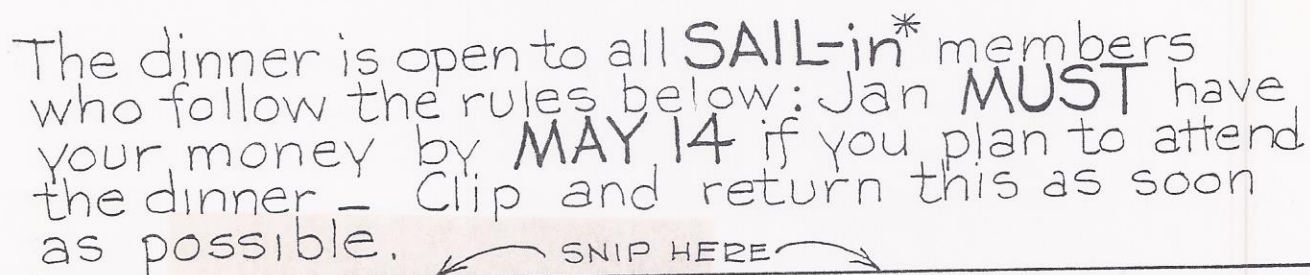 The dinner is open to all SAIL-in* members
who follow the rules below: Jan MUST have
your money by MAY 14 if you plan to attend
the dinner – Clip and return this as soon
as possible.
SNIP HERE